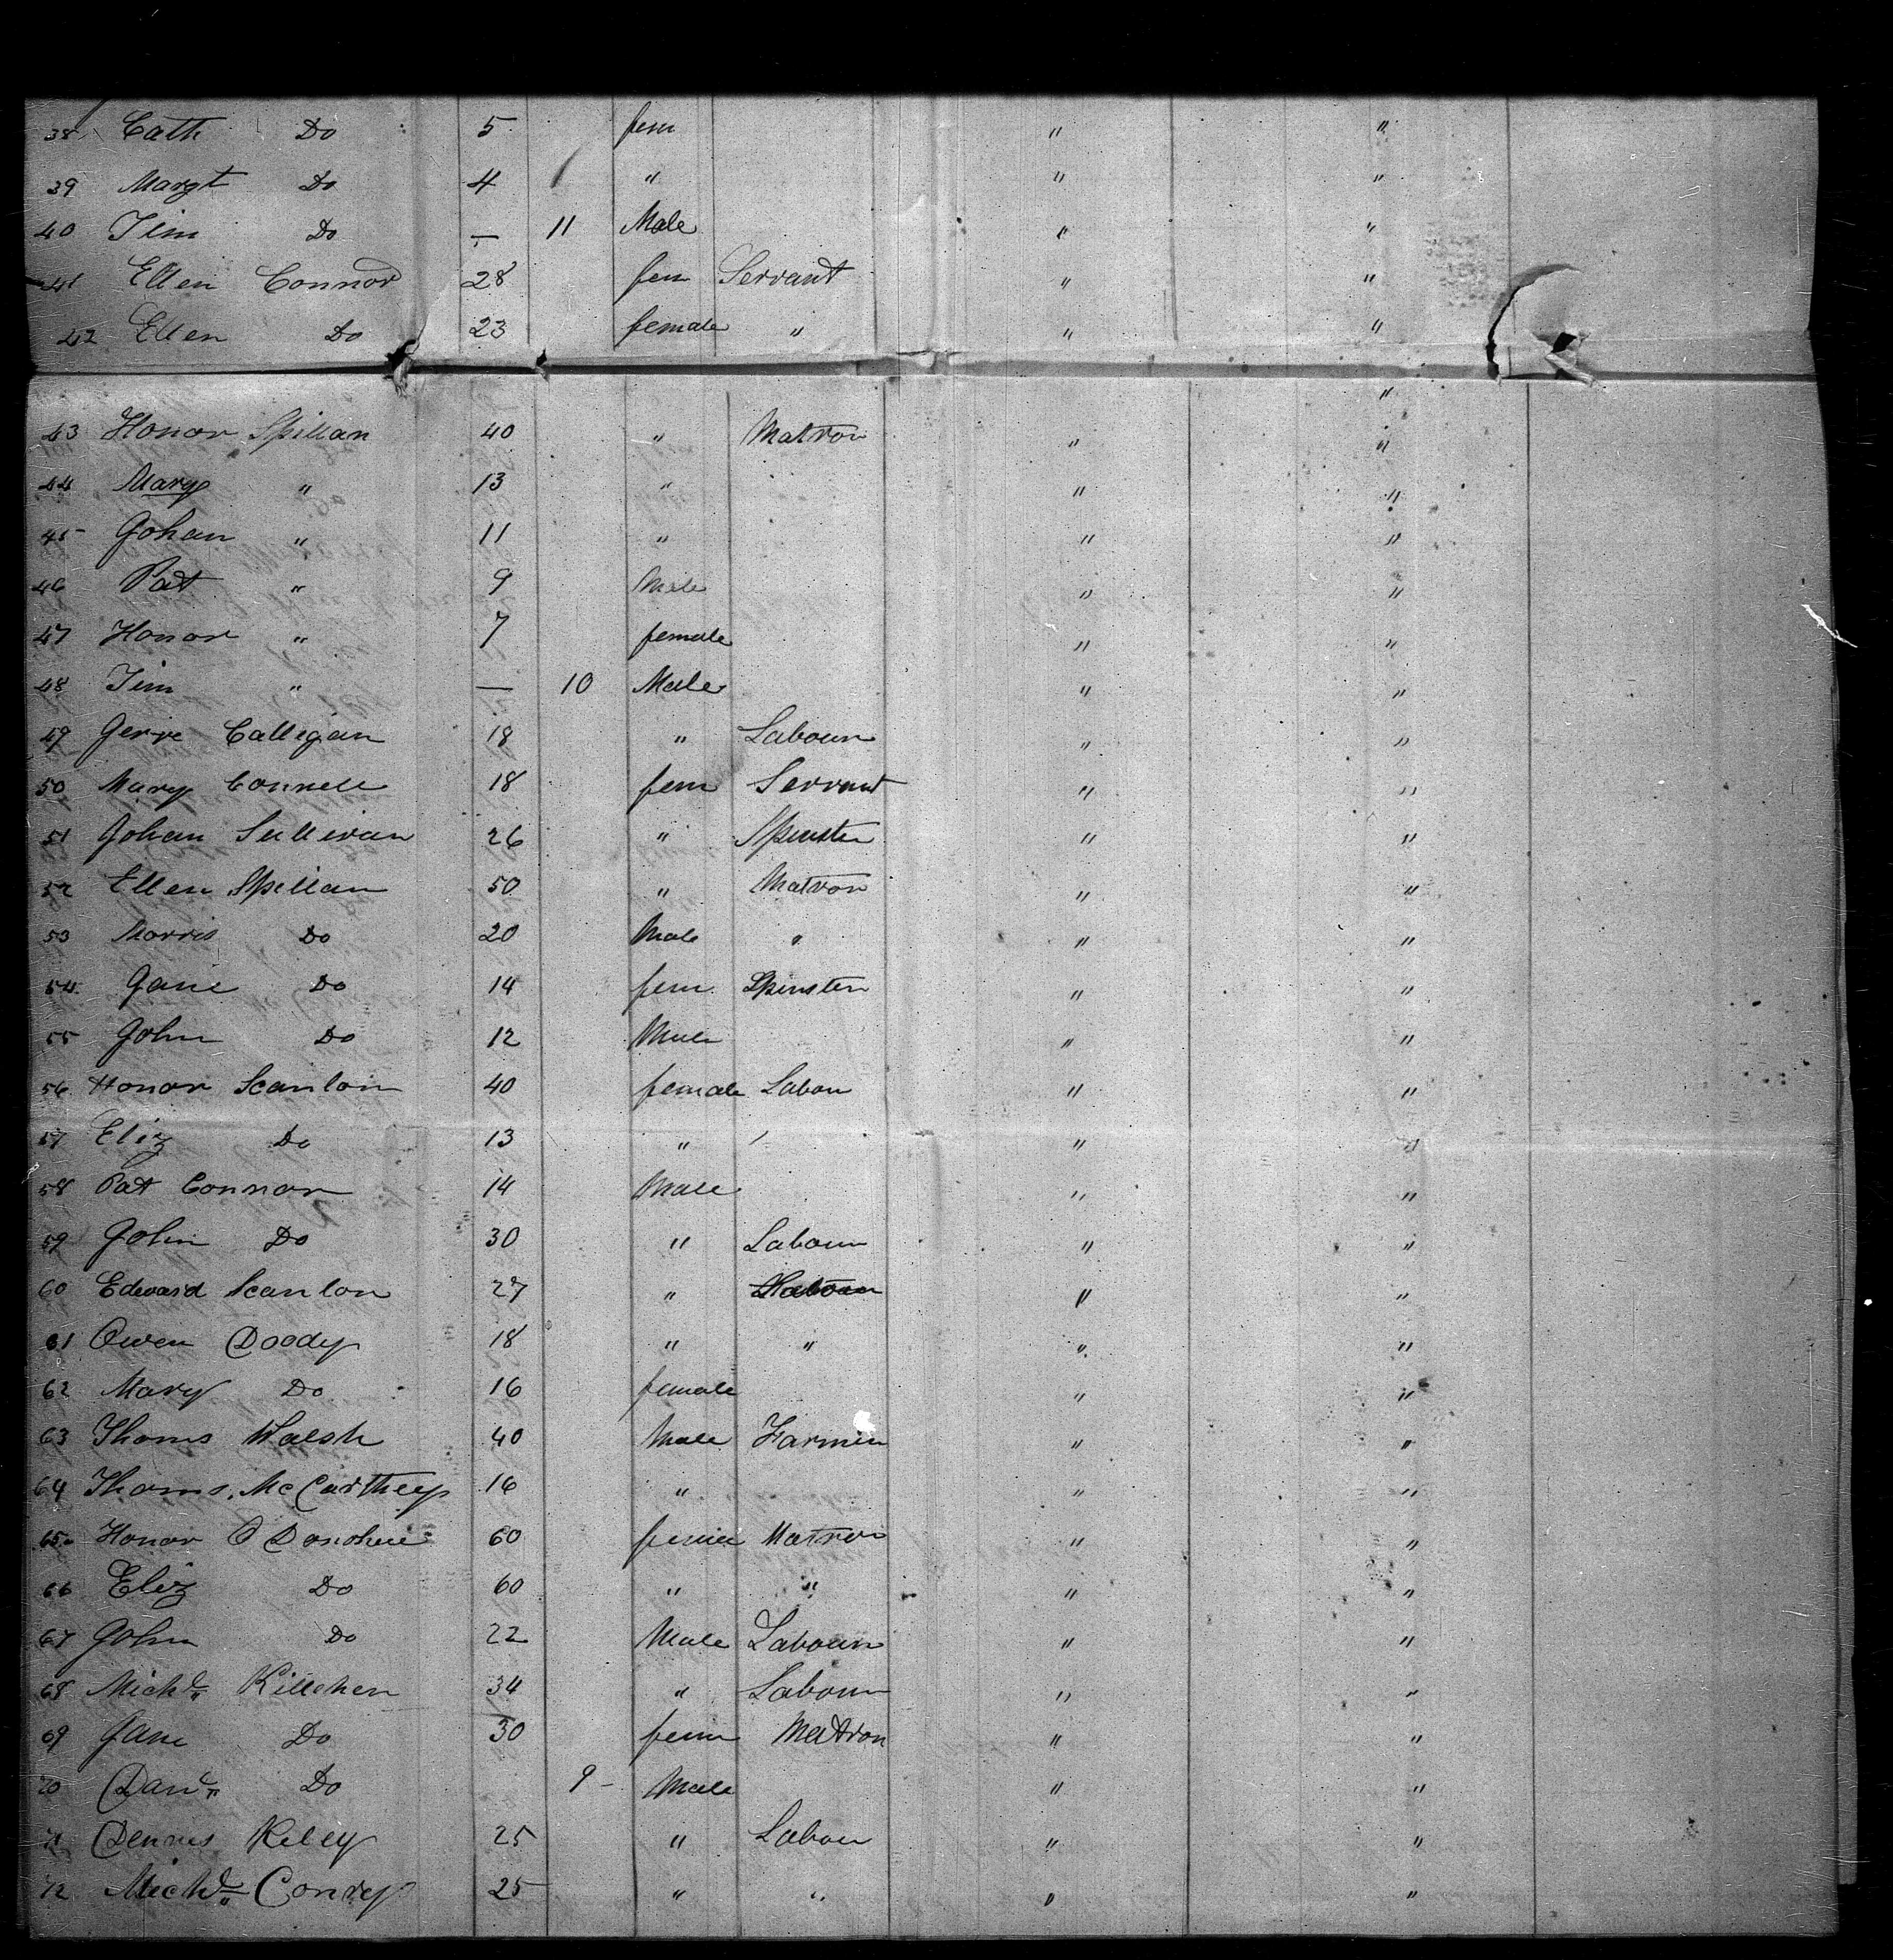 38 Cath Do 5 fem " "
39 Margt Do 4 " " "
40 Tim Do — 11 Male " "
41 Ellen Connor 28 fem Servant " "
42 Ellen Do 23 female " " "
"
43 Honor Spillan 40 " Matron " "
44 Mary " 13 " " "
45 Johan " 11 " " "
46 Pat " 9 Male " "
47 Honor " 7 female " "
48 Tim " — 10 Male " "
49 Jerre Calligan 18 " Labour " "
50 Mary Connell 18 fem Servant " "
51 Johan Sullivan 26 " Spinster " "
52 Ellen Spillan 50 " Matron " "
53 Morris Do 20 Male " " "
54 Jane Do 14 fem Spinster " "
55 John Do 12 Male " "
56 Honor Scanlon 40 female Labou " "
57 Eliz Do 13 " " "
58 Pat Connor 14 Male " "
59 John Do 30 " Labour " "
60 Edward Scanlon 27 " Labour " "
61 Owen Doody 18 " " " "
62 Mary Do 16 female " "
63 Thoms Walsh 40 Male Farmer " "
64 Thoms. McCarthey 16 " " "
65 Honor O Donohue 60 Matron " "
66 Eliz Do 60 " " " "
67 John Do 22 Male Labour " "
68 Michl Killehen 34 " Labour " "
69 Jane Do 30 fem Matron " "
70 Danl Do 9 - Male " "
71 Dennis Kiley 25 " Labou " "
72 Michl Conry 25 " " " "